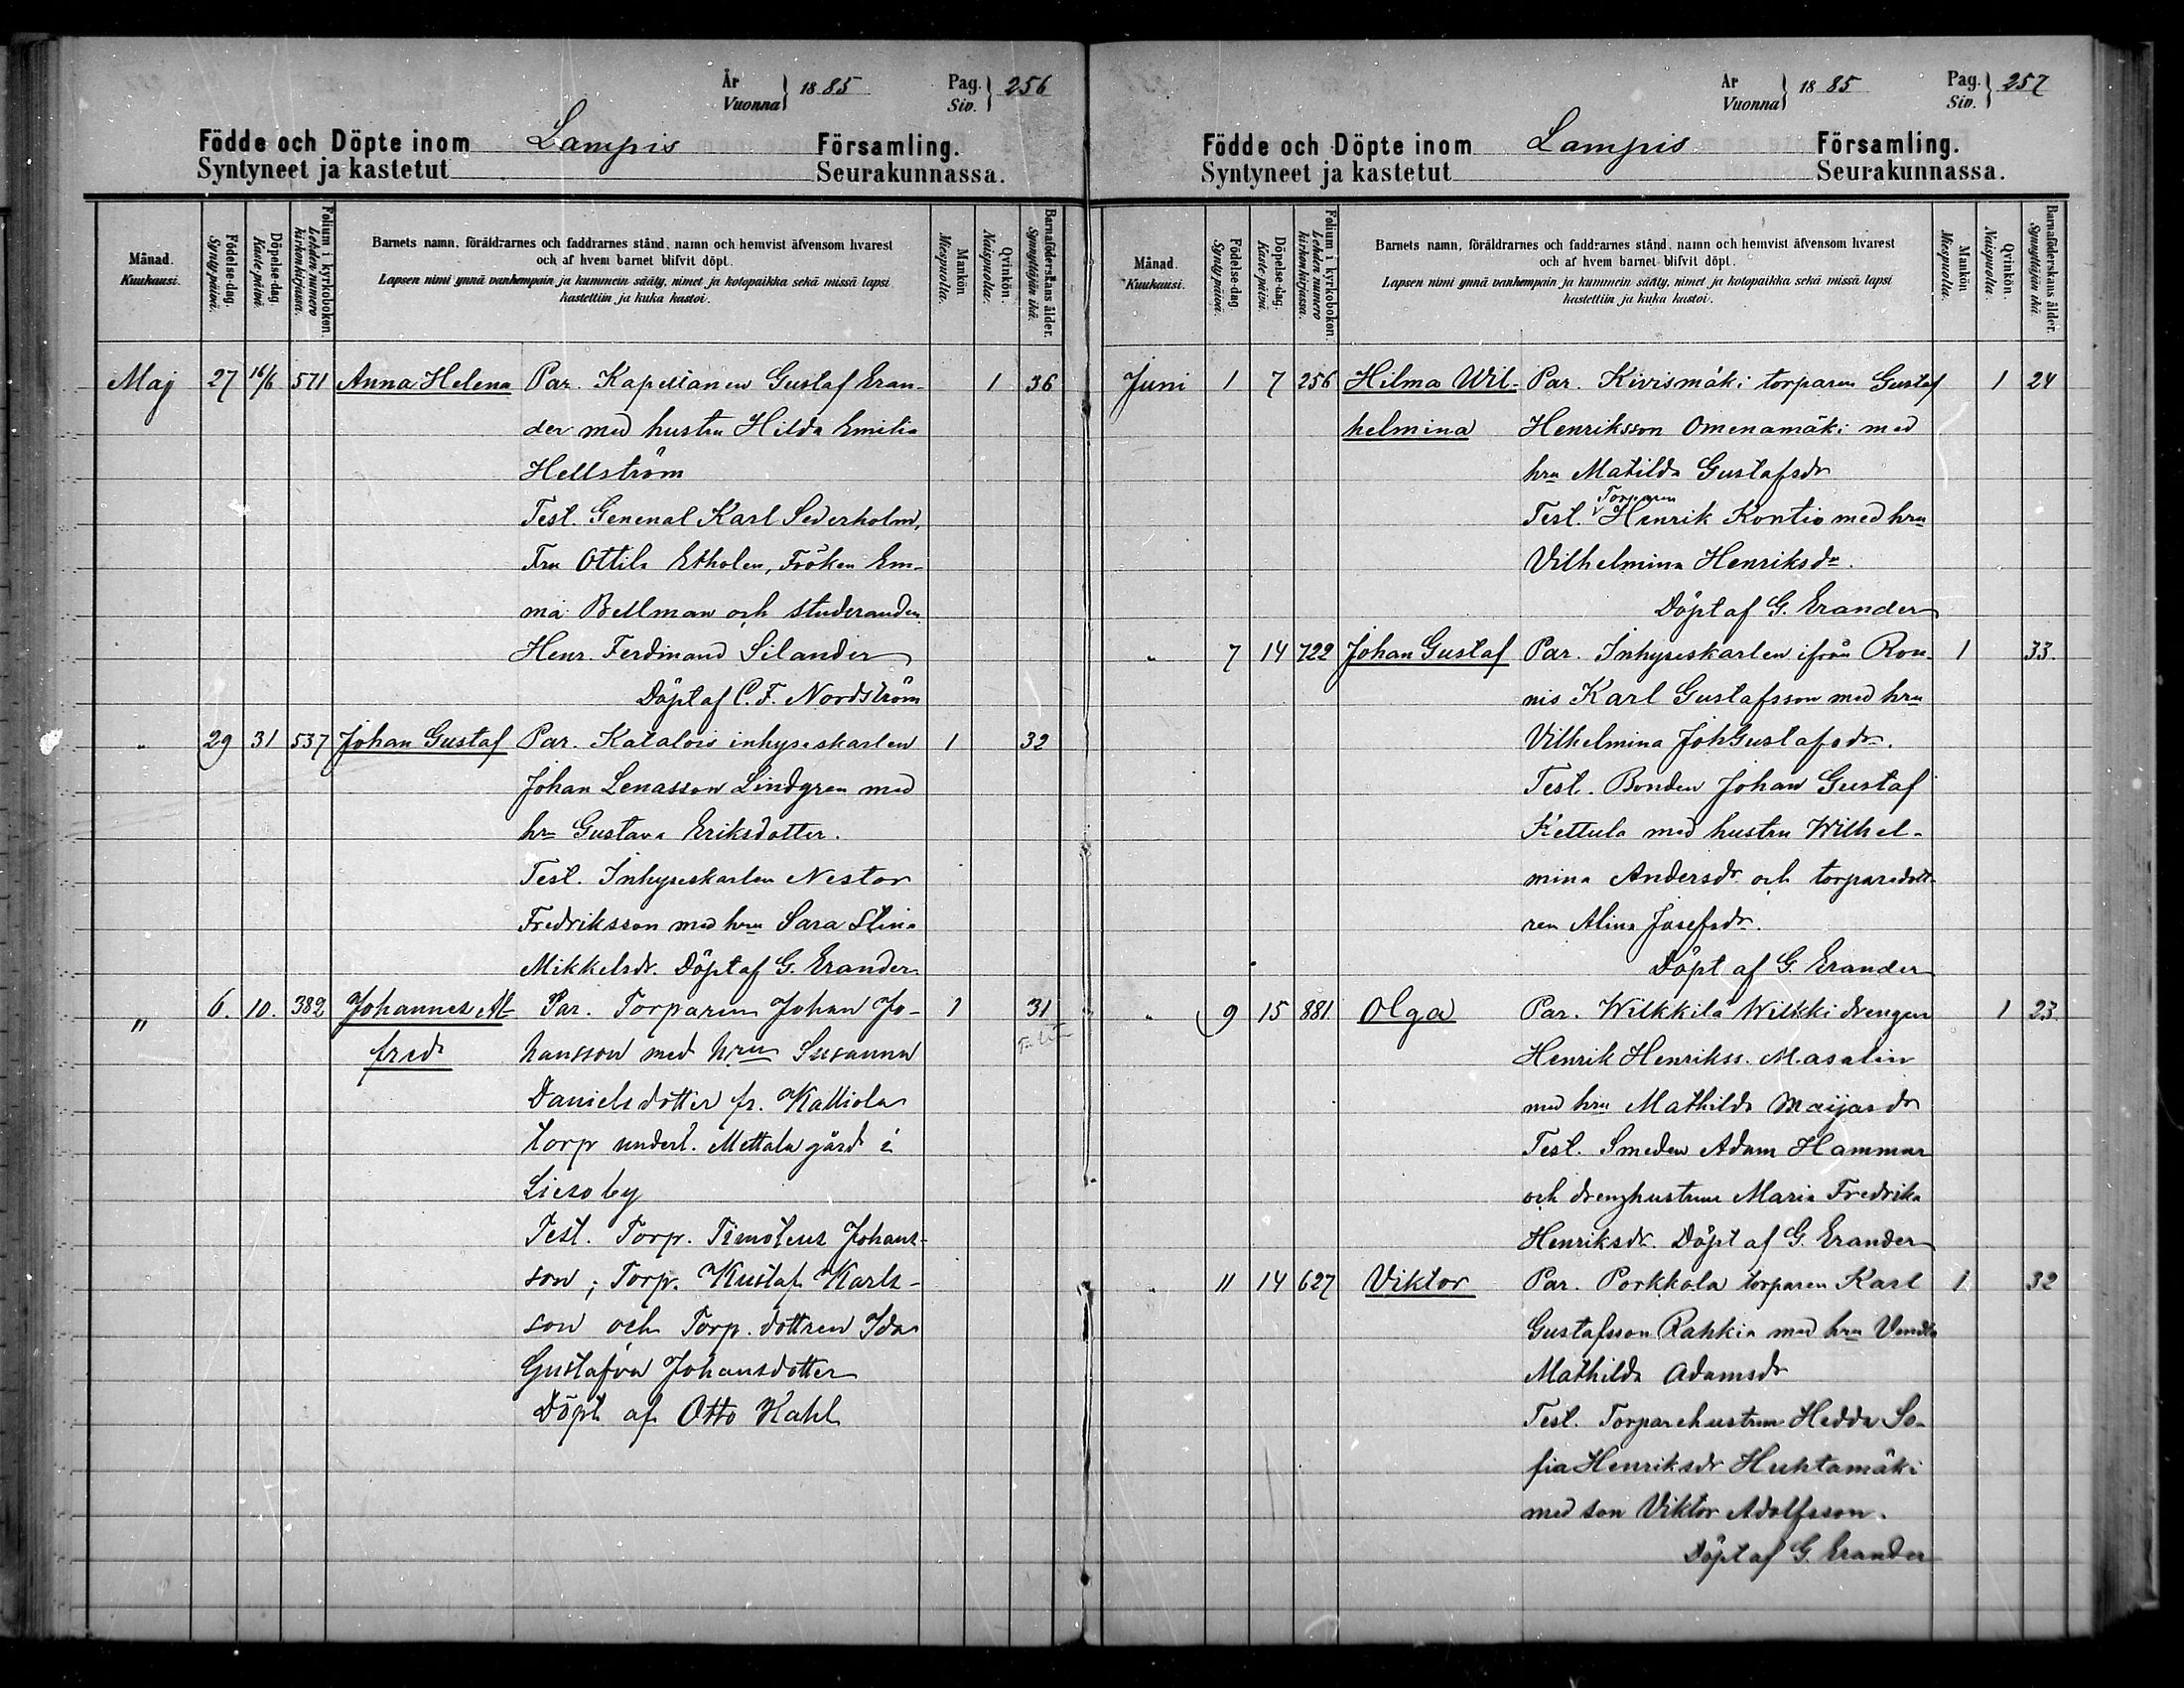 År
Vuonna } 1885 Pag.
Siv. } 256
Födde och Döpte inom Lampis Församling.
Syntyneet ja kastetut Seurakunnassa.
Månad.
Kuukausi.
Födelse-dag.
Synty-päivä.
Döpelse-dag.
Kaste-päivä.
Folium i kyrkoboken.
Lehden numero
kirkonkirjassa.
Barnets namn, föräldrarnes och faddrarnes stånd, namn och hemvist äfvensom hvarest
och af hvem barnet blifvit döpt.
Lapsen nimi ynnä vanhempain ja kummein sääty, nimet ja kotopaikka sekä missä lapsi
kastettiin ja kuka kastoi.
Mankön.
Miespuolta.
Qvinkön.
Naispuolta.
Barnaföderskans ålder.
Synnyttäjän ikä.
Maj 27 16/6 571 Anna Helena Par. Kapellanen Gustaf Eran- 1 36
der med hustru Hilda Emilia
Hellström
Test. General Karl Sederholm,
Fru Ottila Etholen, Fröken Em-
ma Bellman och studeranden
Henr. Ferdinand Silander
Döpt af C. F. Nordström
" 29 31 537 Johan Gustaf Par. Katalois inhyseskarlen 1 32
Johan Lenasson Lindgren med
hru Gustava Eriksdotter.
Test. Inhyseskarlen Nestor
Fredriksson med hru Sara Stina
Mikkelsdr. Döpt af G. Erander
" 6. 10. 382 Johannes Al- Par. Torparen Johan Jo- 1 31
fred hansson med hru Susanna
Danielsdotter fr. Kalliola
torp underl. Mettala gård i
Lieso by
Test. Torp. Timoteus Johans-
son; Torp. Kustaf Karls-
son och Torp. dottren Ida
Gustafva Johansdotter
Döpt af Otto Kahl
År
Vuonna } 1885 Pag.
Siv. } 257
Födde och Döpte inom Lampis Församling.
Syntyneet ja kastetut Seurakunnassa.
Månad.
Kuukausi.
Födelse-dag.
Synty-päivä.
Döpelse-dag.
Kaste-päivä.
Folium i kyrkoboken.
Lehden numero
kirkonkirjassa.
Barnets namn, föräldrarnes och faddrarnes stånd, namn och hemvist äfvensom hvarest
och af hvem barnet blifvit döpt.
Lapsen nimi ynnä vanhempain ja kummein sääty, nimet ja kotopaikka sekä missä lapsi
kastettiin ja kuka kastoi.
Mankön
Miespuolta.
Qvinkön.
Naispuolta
Barnaföderskans ålder.
Synnyttäjän ikä.
Juni 1 7 256 Hilma Wil- Par. Kivismäki torparen Gustaf 1 24
helmina Henriksson Omenamäki med
hru Matilda Gustafsdr
Torparen
Test. Henrik Kontio med hru
Vilhelmina Henriksdr.
Döpt af G. Erander
" 7 14 722 Johan Gustaf Par. Inhyseskarlen ifrån Ron- 1 33.
nis Karl Gustafsson med hru
Vilhelmina JohGustafsdr.
Test. Bonden Johan Gustaf
Kettula med hustru Wilhel-
mina Andersdr. och torparedott-
ren Alina Josefsdr.
Döpt af G. Erander
" 9 15 881 Olga Par. Wilkkilä Wilkki drengen 1 23
Henrik Henrikss. Masalin
med hru Mathilda Maijasdr
Test. Smeden Adam Hammar
och drenghustrun Maria Fredrika
Henriksdr. Döpt af G. Erander
" 11 14 627 Viktor Par. Porkkola torparen Karl 1 32
Gustafsson Rahkia med hru Vendla
Mathilda Adamsdr
Test. Torparehustrun Hedda So-
fia Henriksdr Huhtamäki
med son Viktor Adolfsson.
Döpt af G. Erander